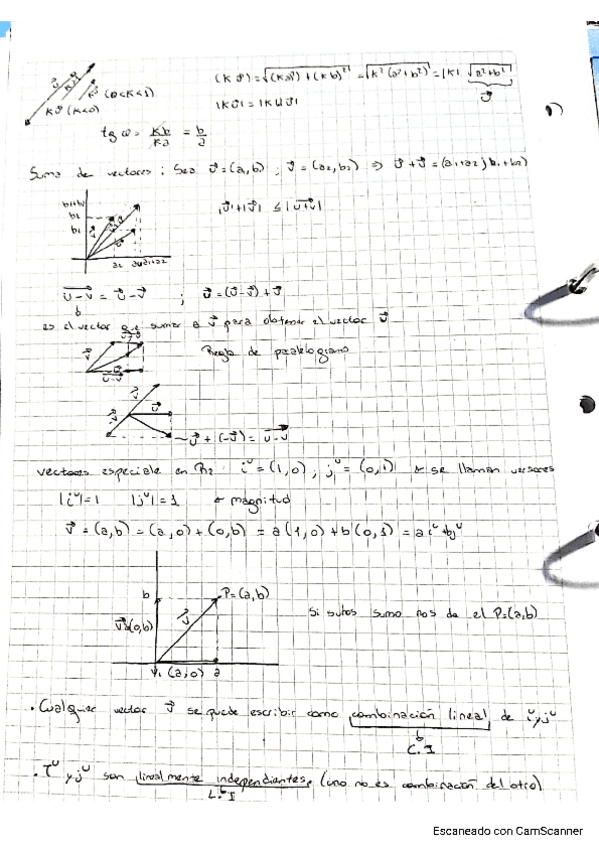 (K v⃗) = √((ka)² + (kb)²) = √(k²(a²+b²)) = |K| √(a²+b²)
v⃗
kv⃗
v⃗
(0<K<1)
Kv⃗ (K<0)
|Kv⃗| = |K||v⃗|
1)
tg φ = Kb/Ka = b/a
Suma de vectores: Sea u⃗=(a,b) ; v⃗=(a2,b2) ⇒ u⃗+v⃗=(a1+a2; b1+b2)
b1+b2
b2
b1
a2 a1 a1+a2
|u⃗|+|v⃗| ≤ |u+v|
u-v = u⃗-v⃗ ; u⃗=(u⃗-v⃗)+v⃗
es el vector que sumar a v⃗ para obtener el vector u⃗
Regla de paralelogramo
u-v
u⃗+(-v⃗)=u-v
vectores especiale en R2: i=(1,0) ; j=(0,1) se llaman versores
|i|=1 |j|=1 magnitud
v⃗=(a,b)=(a,0)+(0,b)=a(1,0)+b(0,1)=ai+bj
b
P=(a,b)
v⃗
(0,b)
Si sumo nos da el P=(a,b)
V1 (a,0) a
. Cualquier vector v⃗ se puede escribir como combinación lineal de i y j
C.I
. i y j son linealmente independientes, (uno no es combinación del otro)
L.I
Escaneado con CamScanner